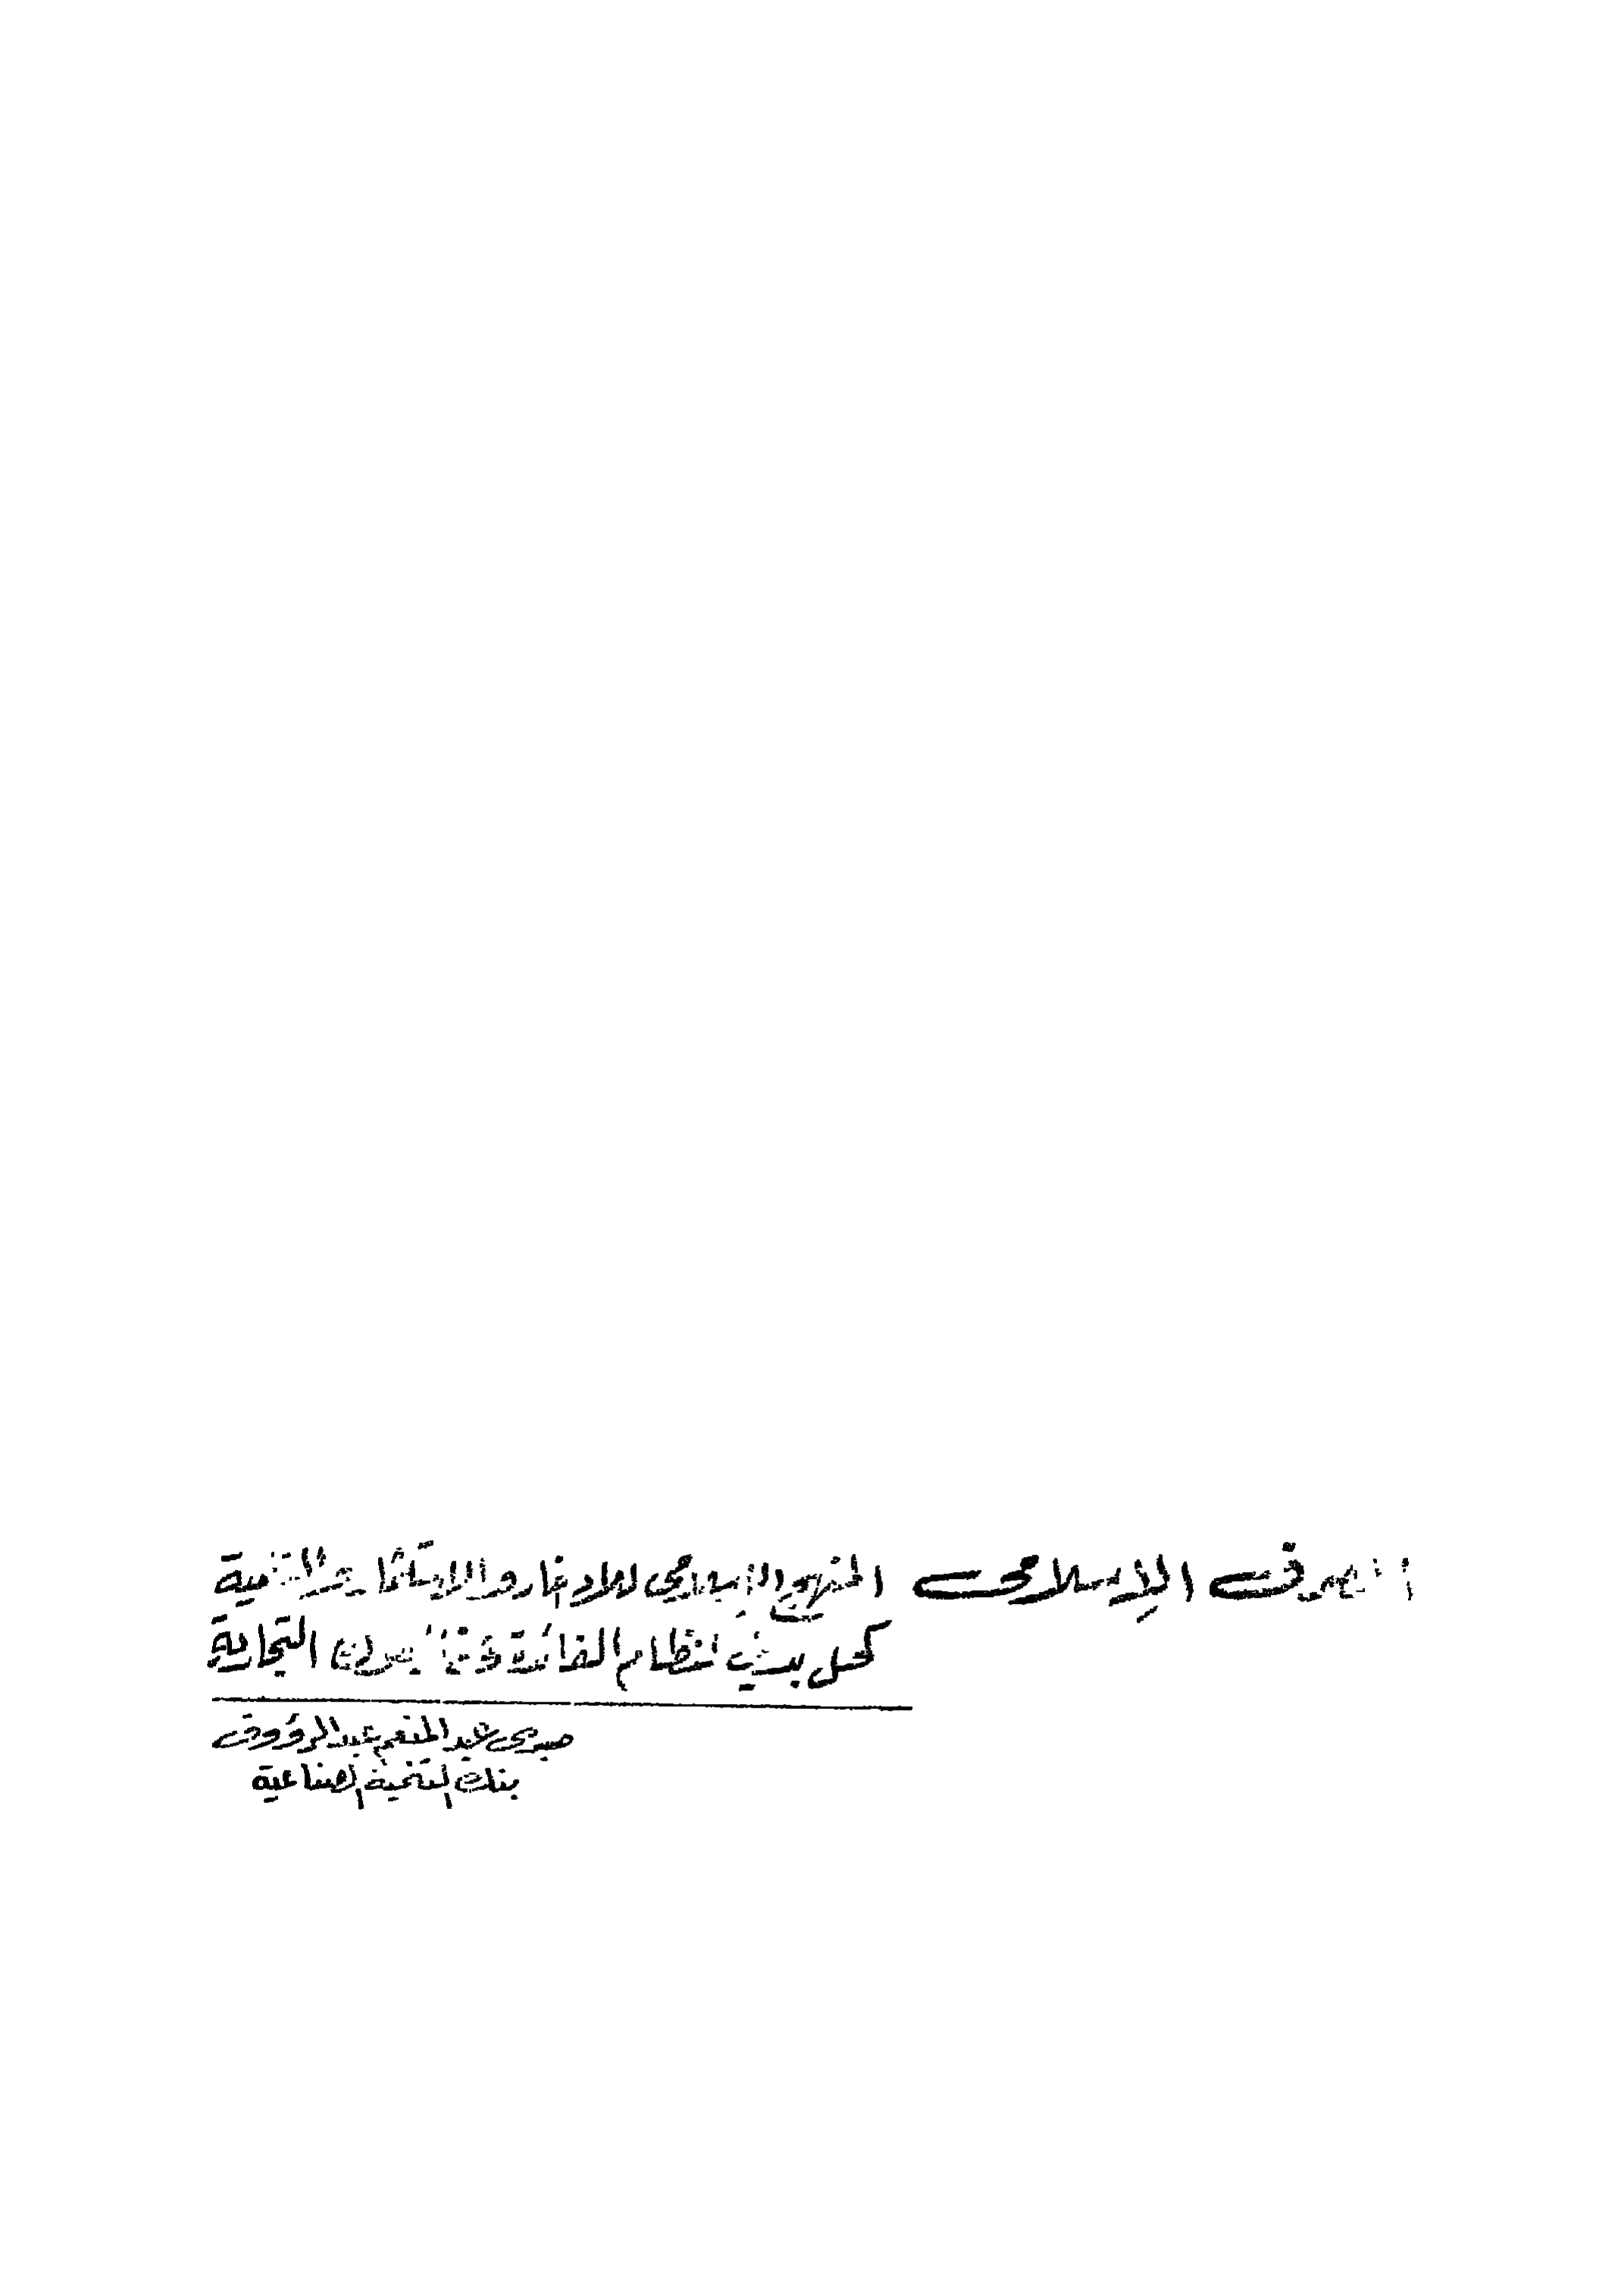 المصرف الإسلامى المنهج الإسلامى للادخار والاستثمار والتنمية
كحل بديل لنظام الفائدة فى المصارف التجارية
صبرى عبد المنعم عبد الرؤوف
بنك التنمية الصناعية